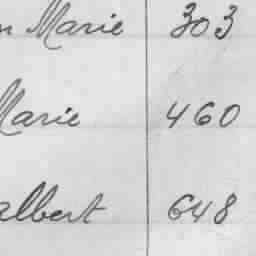 Marie 303
Marie 460
albert 648